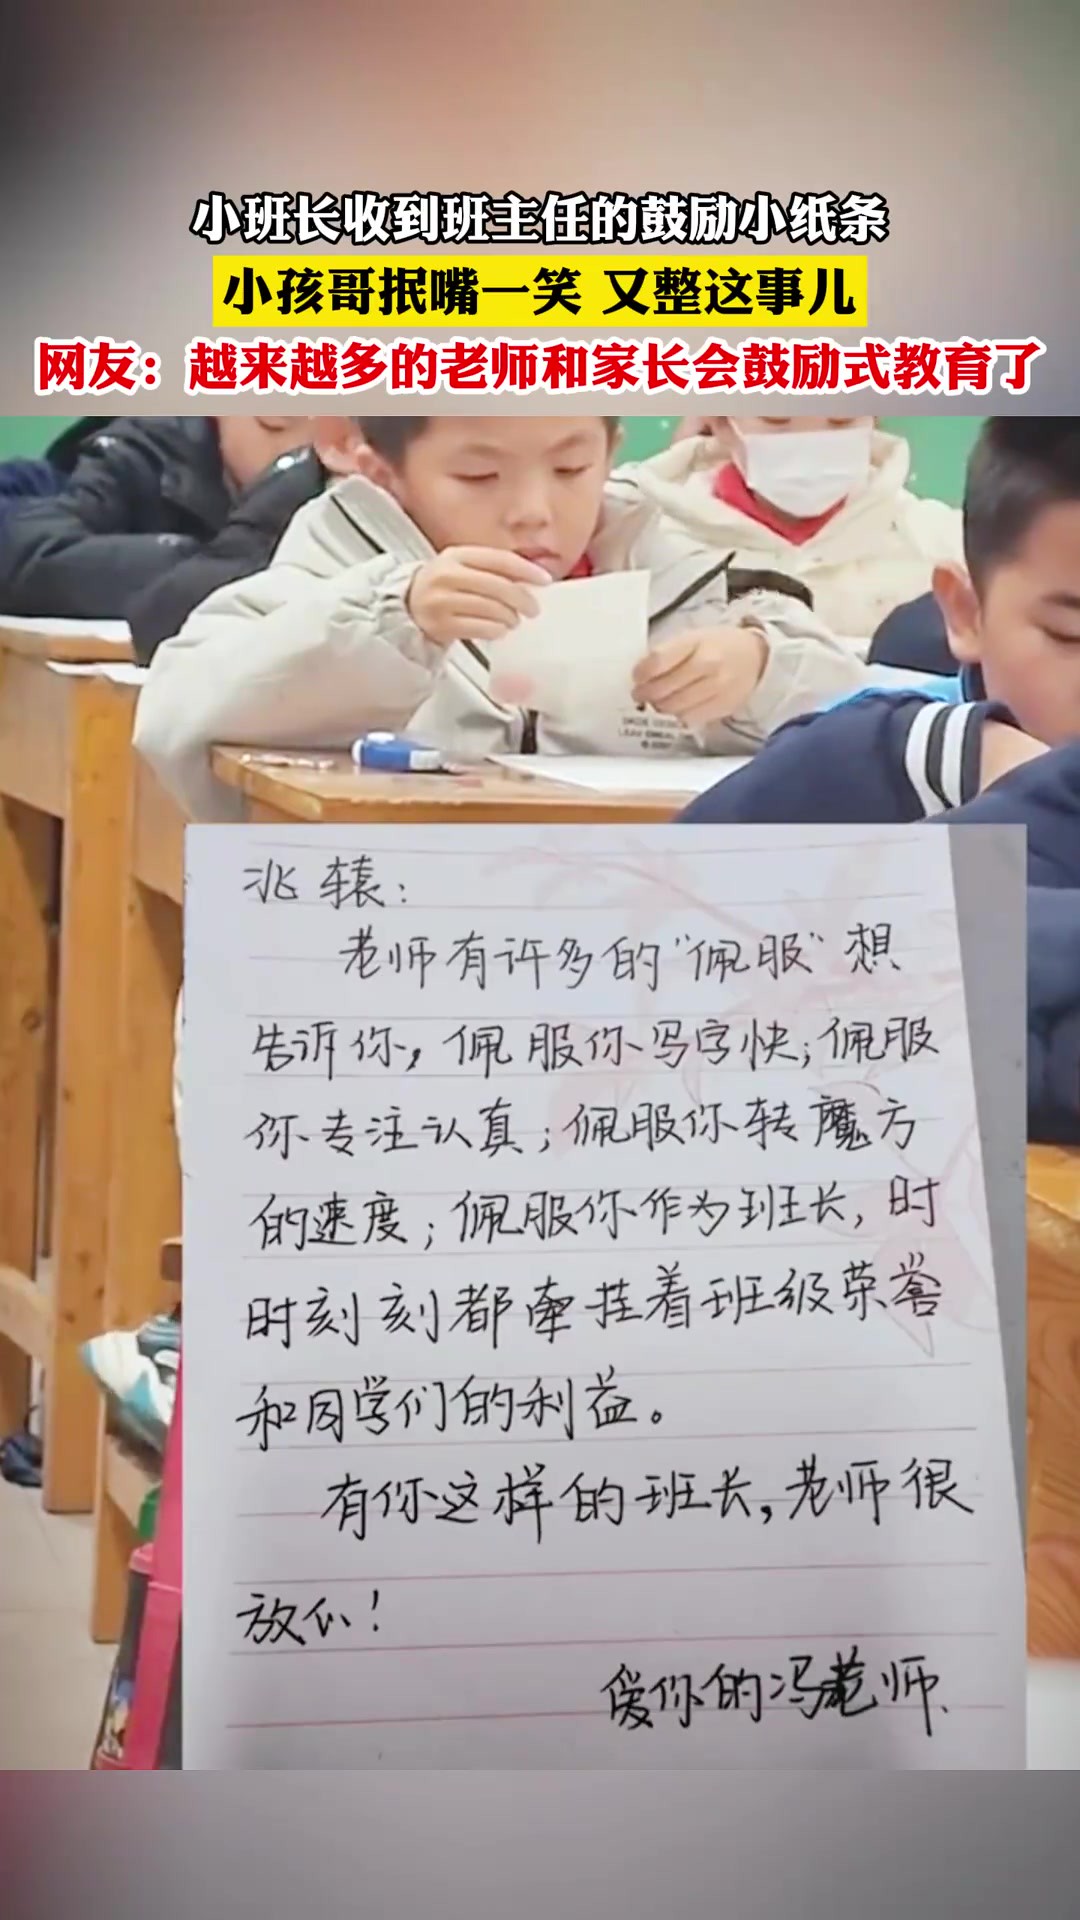 小班长收到班主任的鼓励小纸条
小孩哥抿嘴一笑 又整这事儿
网友：越来越多的老师和家长会鼓励式教育了
兆辕：
老师有许多的“佩服”想
告诉你，佩服你写字快；佩服
你专注认真；佩服你转魔方
的速度；佩服你作为班长，时
时刻刻都牵挂着班级荣誉
和同学们的利益。
有你这样的班长，老师很
放心！
爱你的冯老师